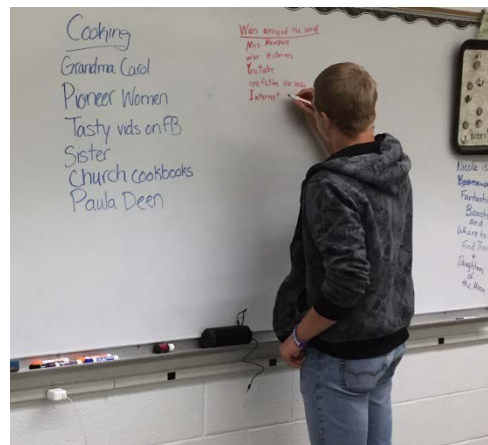 Cooking
Grandma Carol
Pioneer Women
Tasty vids on FB
Sister
Church cookbooks
Paula Deen
Wars around the world
Mrs Newpore
War Historians
YouTube
non fiction War books
Internet
Nicole is
Fantastic
Beasts
and
Where to
Find Them
+
Daughters
of
the Moon